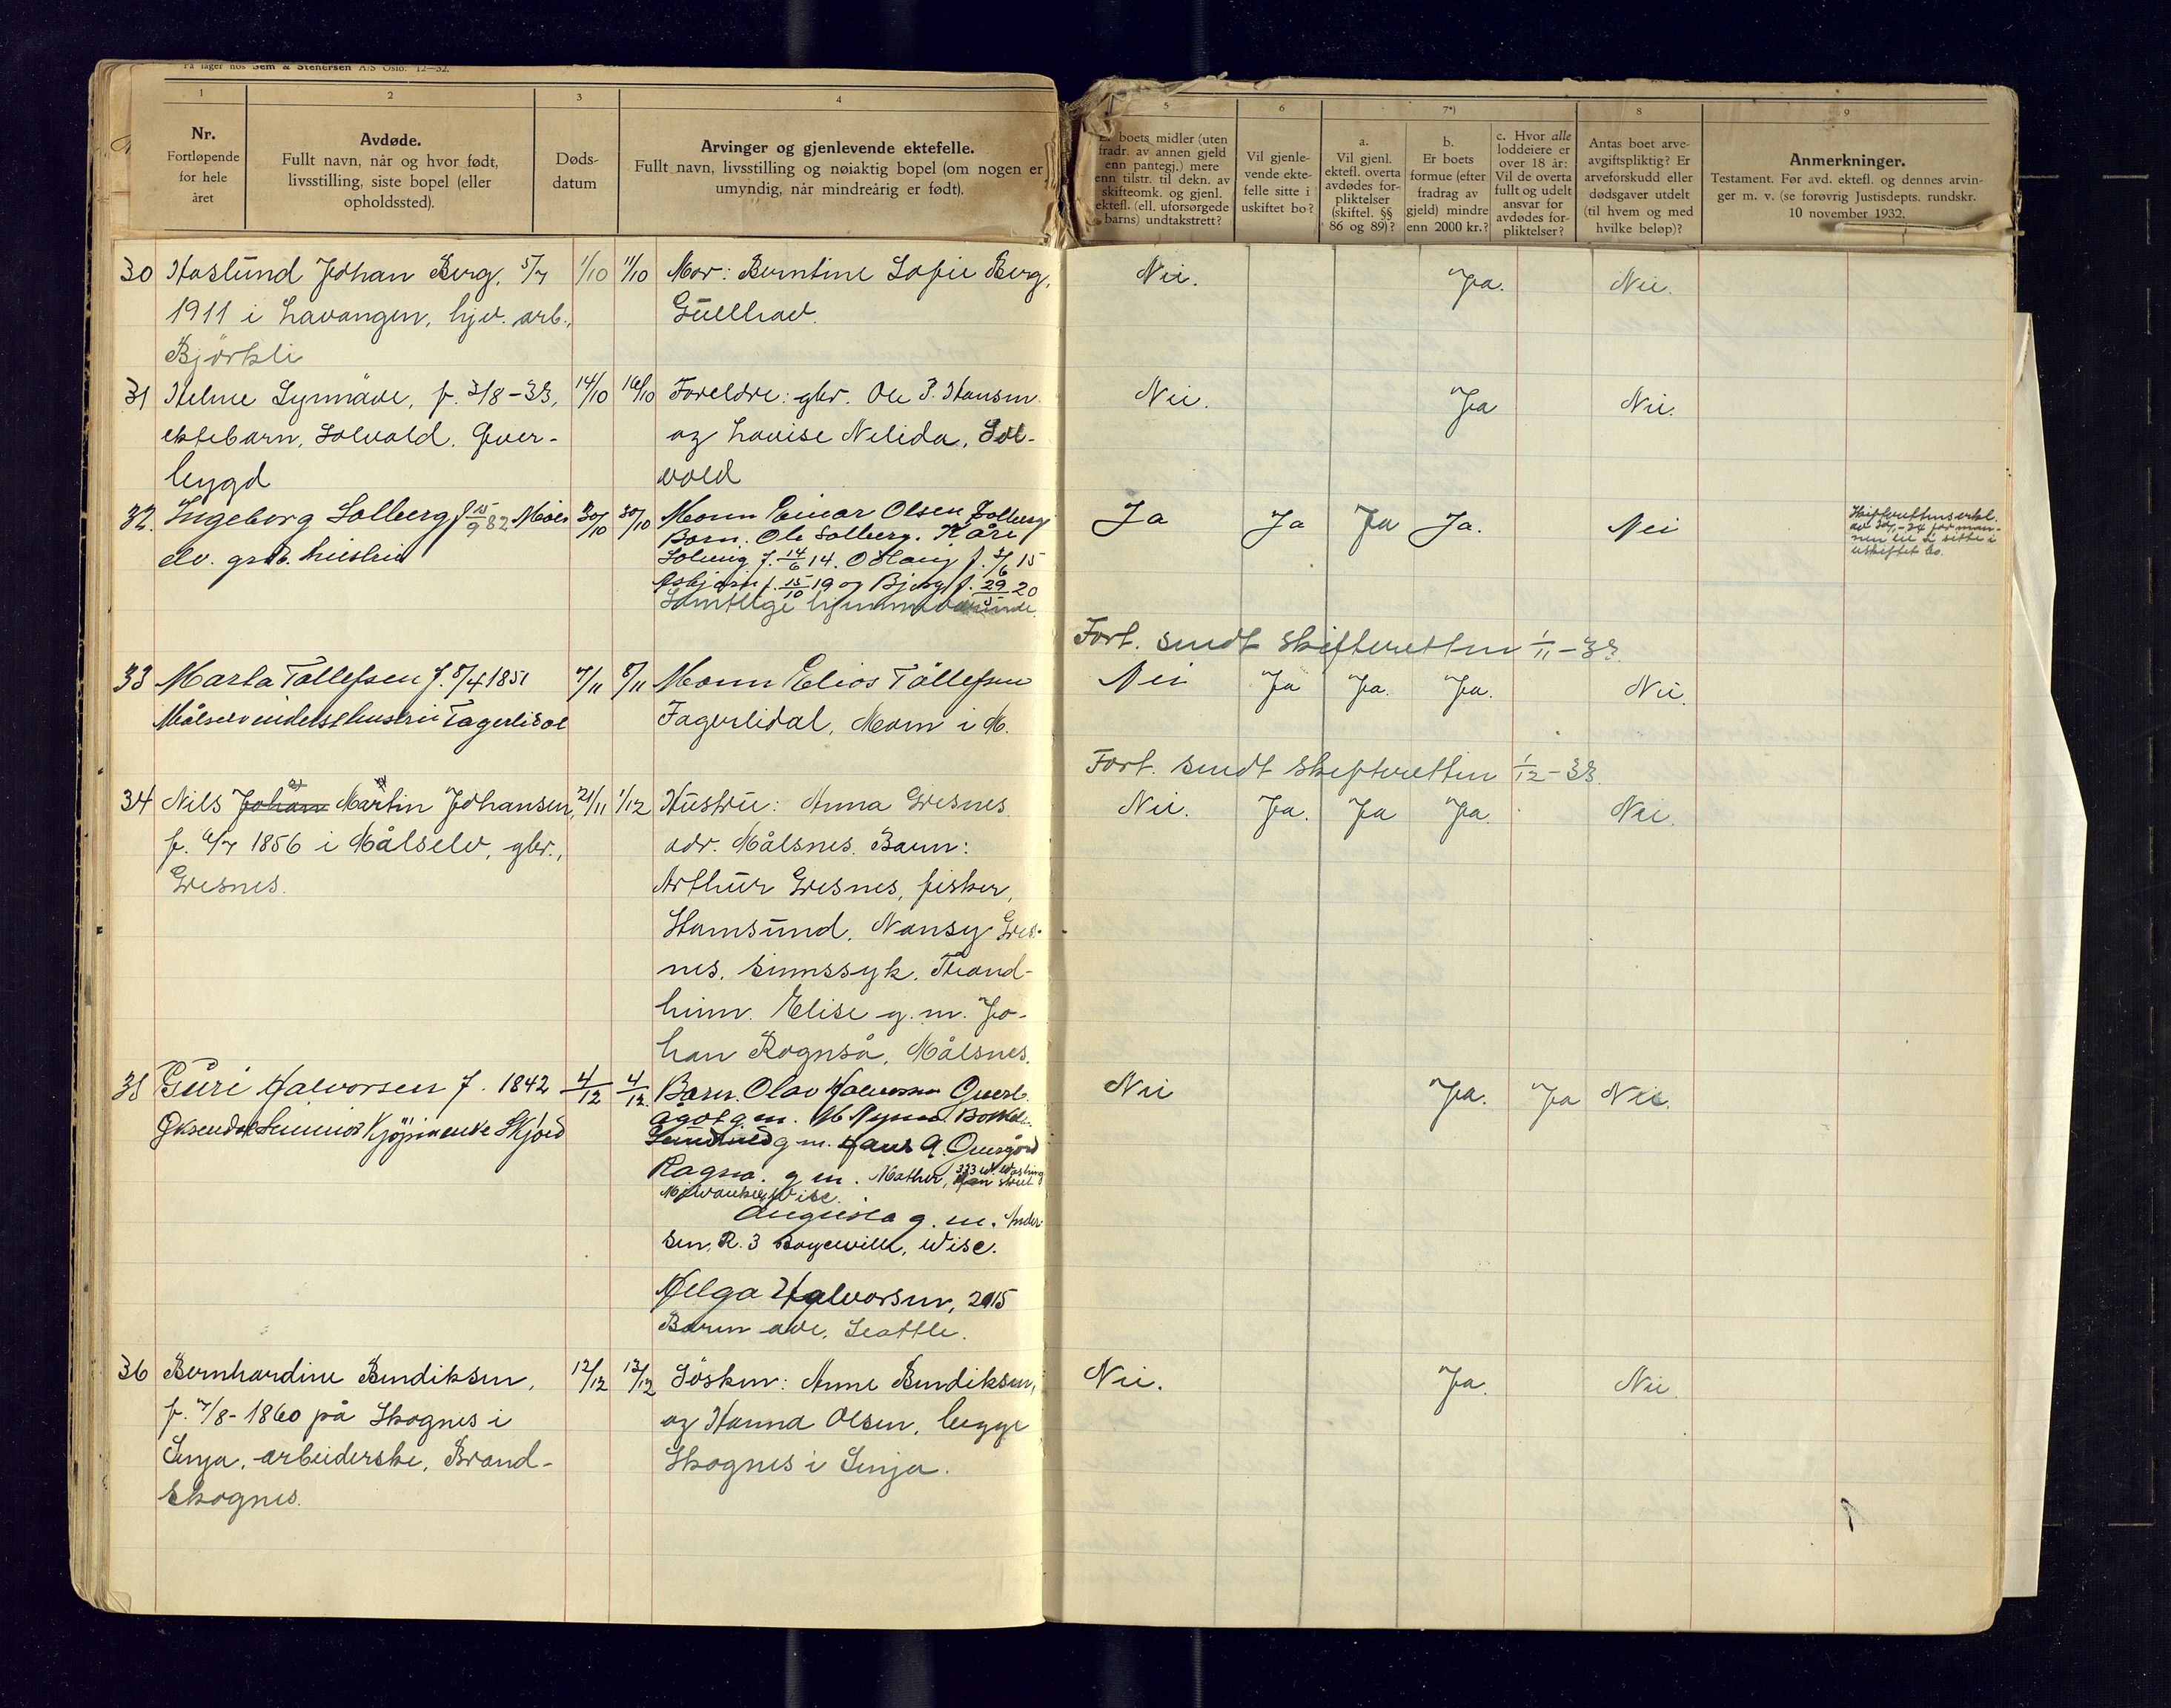 På lager hos Sem & Stenersen A/S Oslo. 12—32.
1
2
3
4
Nr.
Fortløpende
for hele
året
Avdøde.
Fullt navn, når og hvor født,
livsstilling, siste bopel (eller
opholdssted).
Døds-
datum
Arvinger og gjenlevende ektefelle.
Fullt navn, livsstilling og nøiaktig bopel (om nogen er
umyndig, når mindreårig er født).
5
6
7*)
8
9
Er boets midler (uten
fradr. av annen gjeld
enn pantegj.) mere
enn tilstr. til dekn. av
skifteomk. og gjenl.
ektefl. (ell. uforsørgede
barns) undtakstrett?
Vil gjenle-
vende ekte-
felle sitte i
uskiftet bo?
a.
Vil gjenl.
ektefl. overta
avdødes for-
pliktelser
(skiftel. §§
86 og 89)?
b.
Er boets
formue (efter
fradrag av
gjeld) mindre
enn 2000 kr.?
c. Hvor alle
loddeiere er
over 18 år:
Vil de overta
fullt og udelt
ansvar for
avdødes for-
pliktelser?
Antas boet arve-
avgiftspliktig? Er
arveforskudd eller
dødsgaver utdelt
(til hvem og med
hvilke beløp)?
Anmerkninger.
Testament. Før avd. ektefl. og dennes arvin-
ger m. v. (se forøvrig Justisdepts. rundskr.
10 november 1932.
30 Haslund Johan Berg, 5/7 1/10 11/10 Mor: Berntine Sofie Berg, Nei. Ja. Nei.
1911 i Lavangen, hjv. arb., Gullhav.
Björkli
31 Helme Synnäve, f. 3/8-33, 14/10 16/10 Foreldre: gbr. Ole P. Hansen Nei. Ja Nei.
ektebarn, Solvold, Øver- og Lovise Nelida, Sol-
bygd vold
32. Ingeborg Solberg f 15/9 82 Måls 30/10 30/10 Mann Einar Olsen Solberg Ja Ja Ja Ja. Nei
elv. grb. hustru Barn. Ole Solberg. Kåre
Solveig f. 14/6 14. f. 3/6 15
Asbjørn f. 15/10 19 og f. 29/5 20
Samtlige hjemmeværende
Skifterettens erkl.
av 30/1-34 for man-
nen til å sitte i
uskiftet bo.
Fort. sendt skifteretten 1/11-33.
33 Marta Tollefsen f. 5/4 1851 7/11 8/11 Mann Elias Tollefsen Nei Ja Ja. Ja. Nei.
Målselv hustru Fagerlidal Fagerlidal, Moen i M.
Fort. sendt skifteretten 1/12-33.
34 Nils Johan Martin Johansen, 21/11 1/12 Hustru: Anna Gresnes. Nei. Ja. Ja Ja. Nei.
f. 6/7 1856 i Målselv, gbr., adr. Målsnes. Barn:
Gresnes. Arthur Gresnes, fisker,
Hamsund, Nansy Gres-
nes, sinnssyk, Trond-
heim. Elise g.m. Jo-
han Rognså, Målsnes.
35 Guri Halvorsen f. 1842 4/12 4/12. Barn. Olav Halvorsen Øverb. Nei Ja. Ja Nei.
Øksendal Skjold Ågot g.m.
g m. Hans A.
Ragna. g m. Mather, 333 W. Washing-
Milwaukee, Wisc.
Augusta g. m. Ander-
sen, R. 3 Wisc.
Helga Halvorsen, 2015
ave, Seattle.
36 Bernhardine Bendiksen, 12/12 13/12 Søsken: Anne Bendiksen, Nei. Ja. Nei.
f. 7/8-1860 på Skognes i og Hanna Olsen, begge
Senja, arbeiderske, Brand- Skognes i Senja.
skognes.